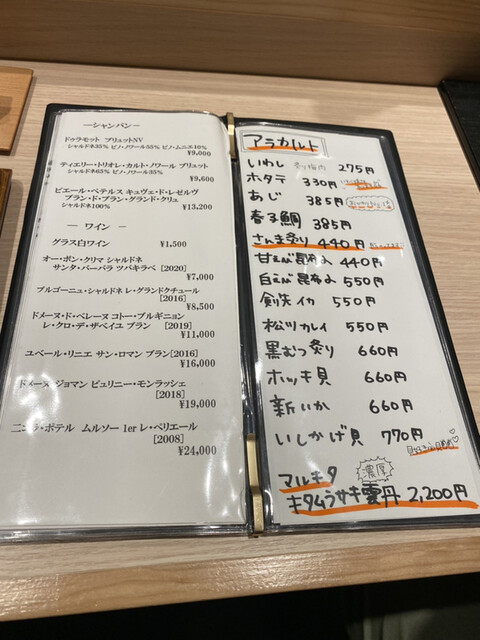 ―シャンパン―
ドゥラモット ブリュットNV
シャルドネ55% ピノ・ノワール55% ピノ・ムニエ10%
¥9,000
ティエリー・トリオレ・カルト・ノワール ブリュット
シャルドネ65% ピノ・ノワール35%
¥9,600
ピエール・ペテルス キュヴェ・ド・レゼルヴ
ブラン・ド・ブラン・グランド・クリュ
シャルドネ100%
¥13,200
― ワイン ―
グラス白ワイン ¥1,500
オー・ボン・クリマ シャルドネ
サンタ・バーバラ ツバキラベ [2020]
¥7,000
ブルゴーニュ・シャルドネ レ・グランドクチュール
[2016]
¥8,500
ドメーヌ・ド・ベレーヌ コトー・ブルギニョン
レ・クロ・デ・ザベイユ ブラン [2019]
¥11,000
ユベール・リニエ サン・ロマン ブラン[2016]
¥16,000
ドメーヌ ジョマン ピュリニー・モンラッシェ
[2018]
¥19,000
ニコラ・ポテル ムルソー 1er レ・ペリエール
[2008]
¥24,000
アラカルト
いわし 275円
ホタテ 330円
あじ 385円
春子鯛 385円
さんま炙り 440円
甘えび昆布〆 440円
白えび昆布〆 550円
剣先イカ 550円
松ツカレイ 550円
黒むつ炙り 660円
ホッキ貝 660円
新いか 660円
いしかげ貝 770円
濃厚
マルキタ
キタムラサキ雲丹 2,200円